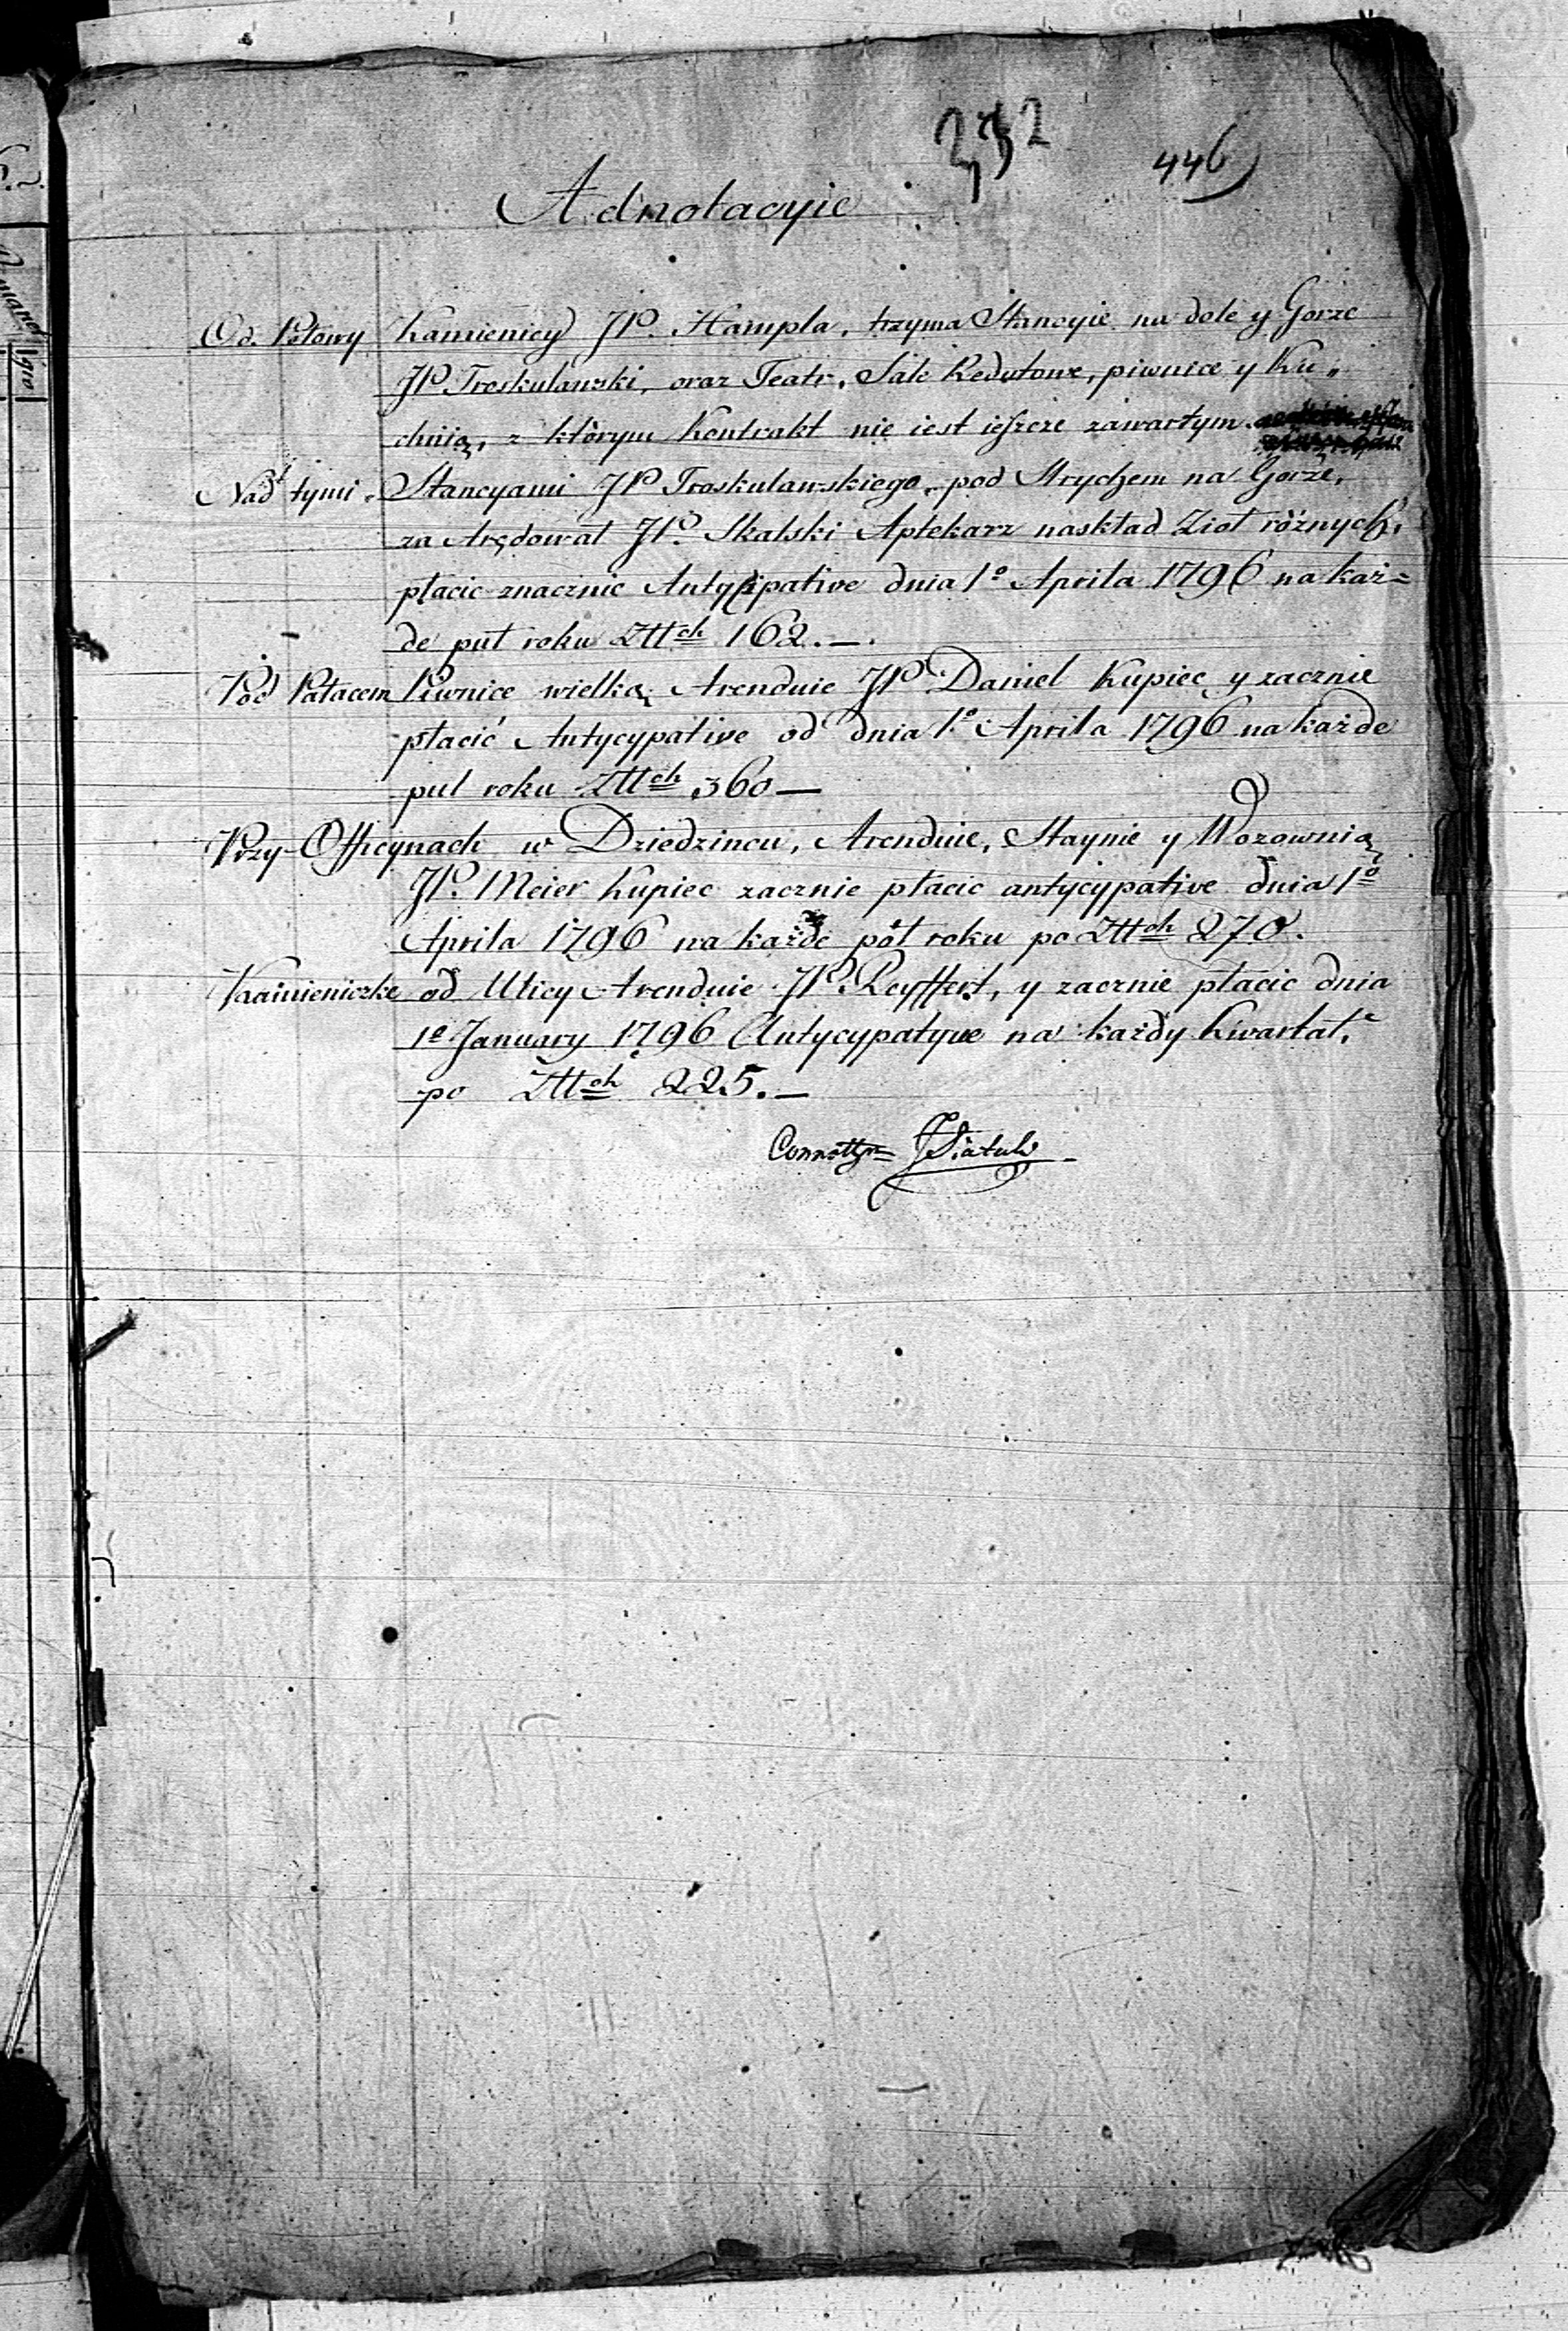 232
446
Adnotacyie
Od Połowy Kamienicy JP. Hampla, trzyma Stancyie na dole y Gorze
JP Troskulawski, oraz Teatr, Sale Redutowe, piwnice y Ku„
chnią, z którym Kontrakt nie iest ieszcze zawartym.
Nad tymi Stancyami JP Troskulawskiego, pod Strychem na Gorze,
za Arędował JP. Skalski Aptekarz naskład Zioł różnych,
płacic znacznie Antycipative dnia 1o Aprila 1796 na każ=
de puł roku Złłch 162.—.
Pod Pałacem Piwnice wielką Arenduie JP Daniel Kupiec y zacznie
płacić Antycypative od dnia 1o Aprila 1796 na każde
puł roku Złłch 360—
Przy Officynach w Dziedzincu, Arenduie, Staynie y Wozownią
JP. Meier Kupiec zacznie płacic antycypative dnia 1o
Aprila 1796 na każde pół roku po Złłch 270.
Kamieniczke od Ulicy Arenduie JP. Reyffert, y zacznie płacic dnia
1o January 1796 Antycypatyve na każdy Kwartał,
po Złłch 225.—